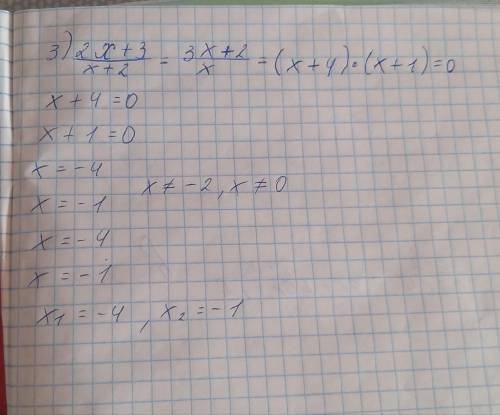 3) (2x+3)/(x+2) = (3x+2)/x = (x+4)•(x+1)=0
x+4=0
x+1=0
x=-4
x≠-2, x≠0
x=-1
x=-4
x=-1
x₁=-4, x₂=-1